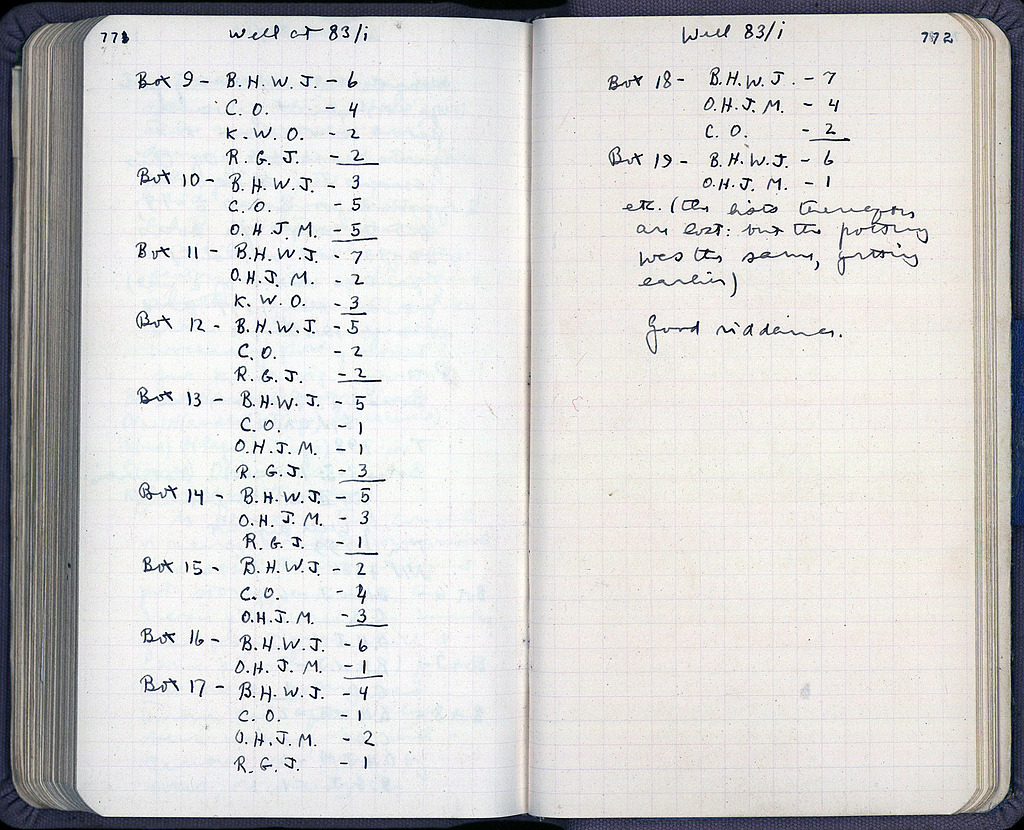 771
Well at 83/i
Box 9 - B.H.W.J. - 6
C.O. - 4
K.W.O. - 2
R.G.J. - 2
Box 10 - B.H.W.J. - 3
C.O. - 5
O.H.J.M. - 5
Box 11 - B.H.W.J. - 7
O.H.J.M. - 2
K.W.O. - 3
Box 12 - B.H.W.J. - 5
C.O. - 2
R.G.J. - 2
Box 13 - B.H.W.J. - 5
C.O. - 1
O.H.J.M. - 1
R.G.J. - 3
Box 14 - B.H.W.J. - 5
O.H.J.M. - 3
R.G.J. - 1
Box 15 - B.H.W.J. - 2
C.O. - 4
O.H.J.M. - 3
Box 16 - B.H.W.J. - 6
O.H.J.M. - 1
Box 17 - B.H.W.J. - 4
C.O. - 1
O.H.J.M. - 2
R.G.J. - 1
Well 83/i
772
Box 18 - B.H.W.J. - 7
O.H.J.M. - 4
C.O. - 2
Box 19 - B.H.W.J. - 6
O.H.J.M. - 1
etc. (the lists
are lost: but the pottery
was the same, getting
earlier)
Good riddance.